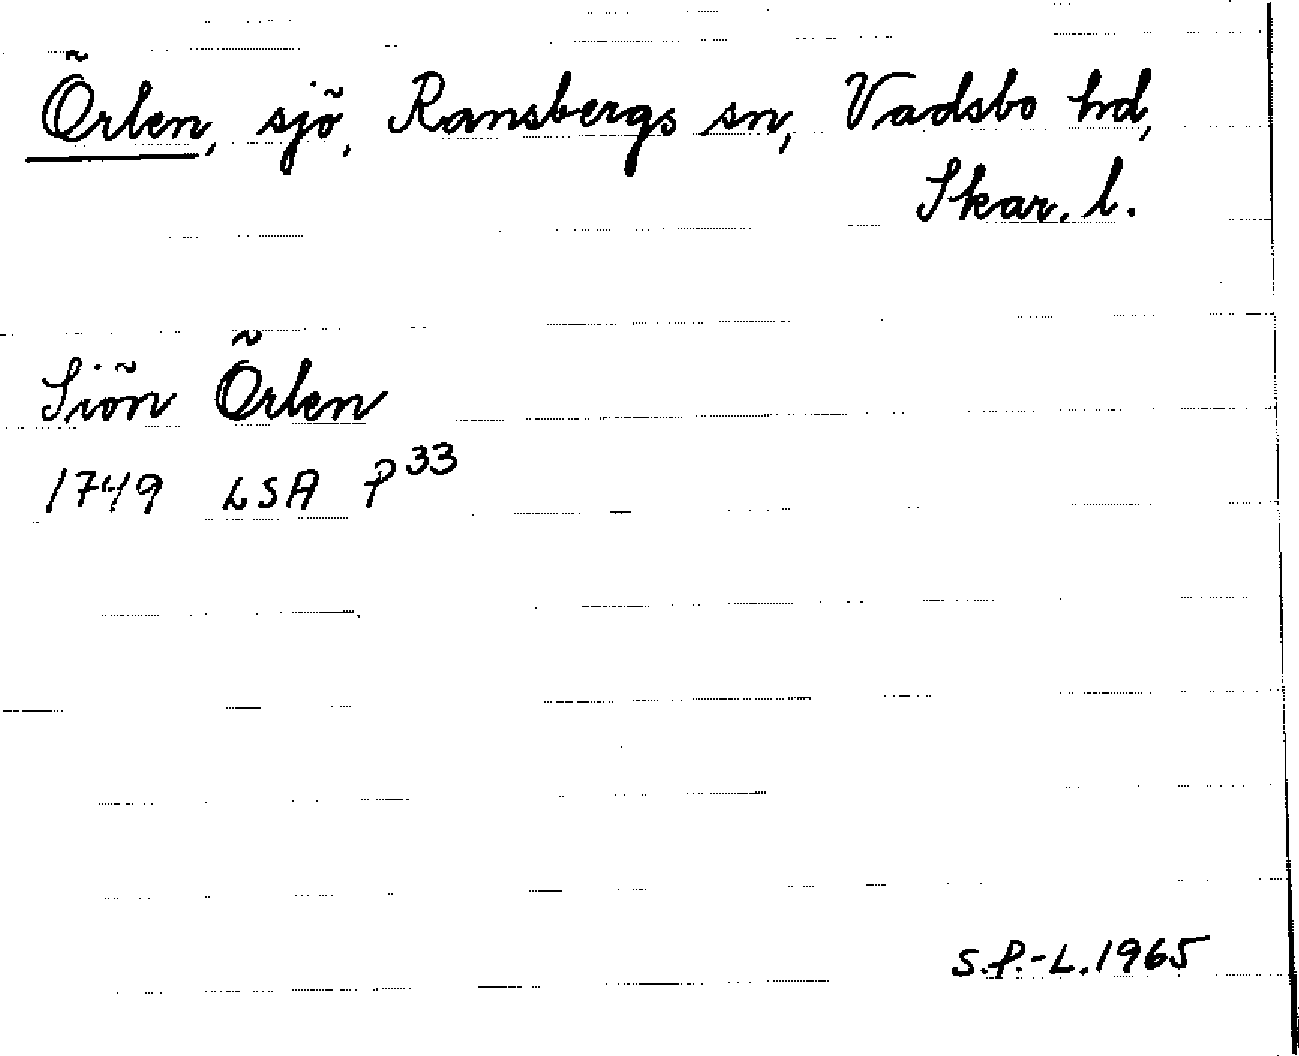 Örlen, sjö, Ransbergs sn, Vadsbo hd,
Skar. l.
Siön Örlen
1749 LSA P 33
S.P.-L. 1965